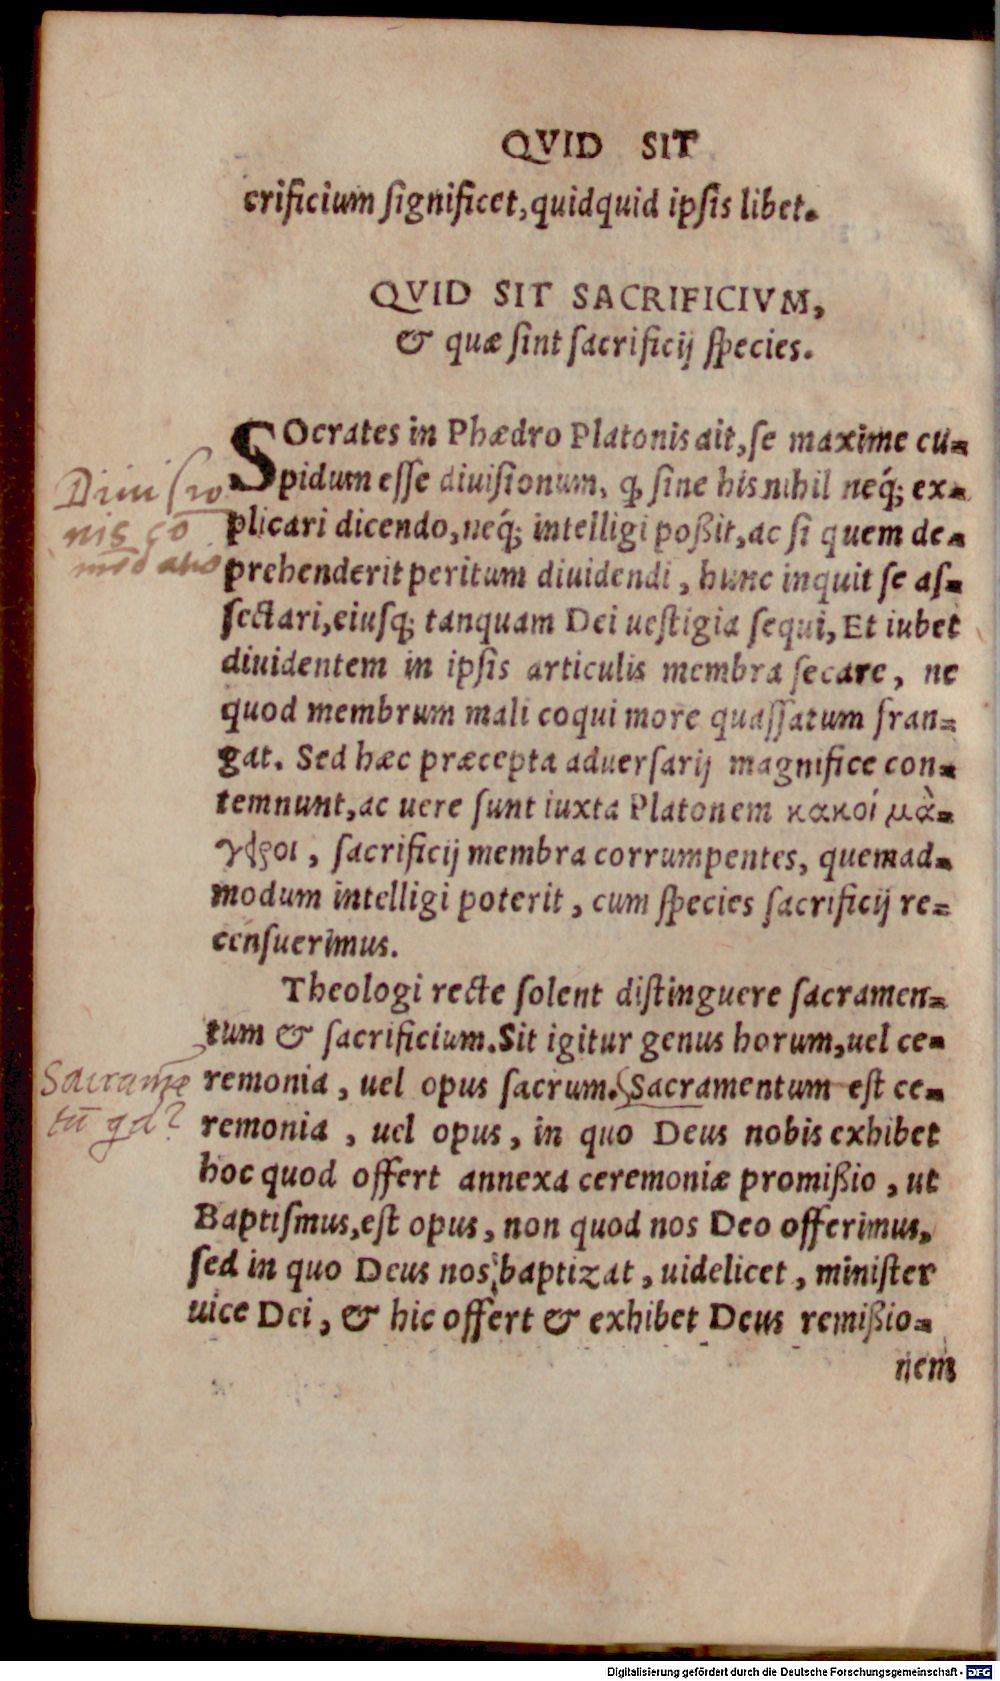 QVID SIT
crificium ſignificet, quidquid ipſis libet.
QVID SIT SACRIFICIVM,
& quæ ſint ſacrificij ſpecies.
SOcrates in Phædro Platonis ait, ſe maxime cu-
pidum eſſe diuiſionum, ꝙ ſine his nihil neq́; ex-
plicari dicendo, neq́; intelligi poßit, ac ſi quem de-
prehenderit peritum diuidendi, hunc inquit ſe aſ-
ſectari, eiuſq; tanquam Dei ueſtigia ſequi, Et iubet
diuidentem in ipſis articulis membra ſecare, ne
quod membrum mali coqui more quaſſatum fran-
gat. Sed hæc præcepta aduerſarij magnifice con-
temnunt, ac uere ſunt iuxta Platonem κακοί μὰ-
γφροι, ſacrificij membra corrumpentes, quemad-
modum intelligi poterit, cum ſpecies ſacrificij re-
cenſuerimus.
Theologi recte ſolent diſtinguere ſacramen-
tum & ſacrificium. Sit igitur genus horum, uel ce-
remonia, uel opus ſacrum. Sacramentum eſt ce-
remonia, uel opus, in quo Deus nobis exhibet
hoc quod offert annexa ceremoniæ promißio, ut
Baptiſmus, eſt opus, non quod nos Deo offerimus,
ſed in quo Deus nos baptizat, uidelicet, miniſter
uice Dei, & hic offert & exhibet Deus remißio-
nem
Diuiſio
nis co
modatio
Sacramē
tū qd?
Digitalisierung gefördert durch die Deutsche Forschungsgemeinschaft - DFG